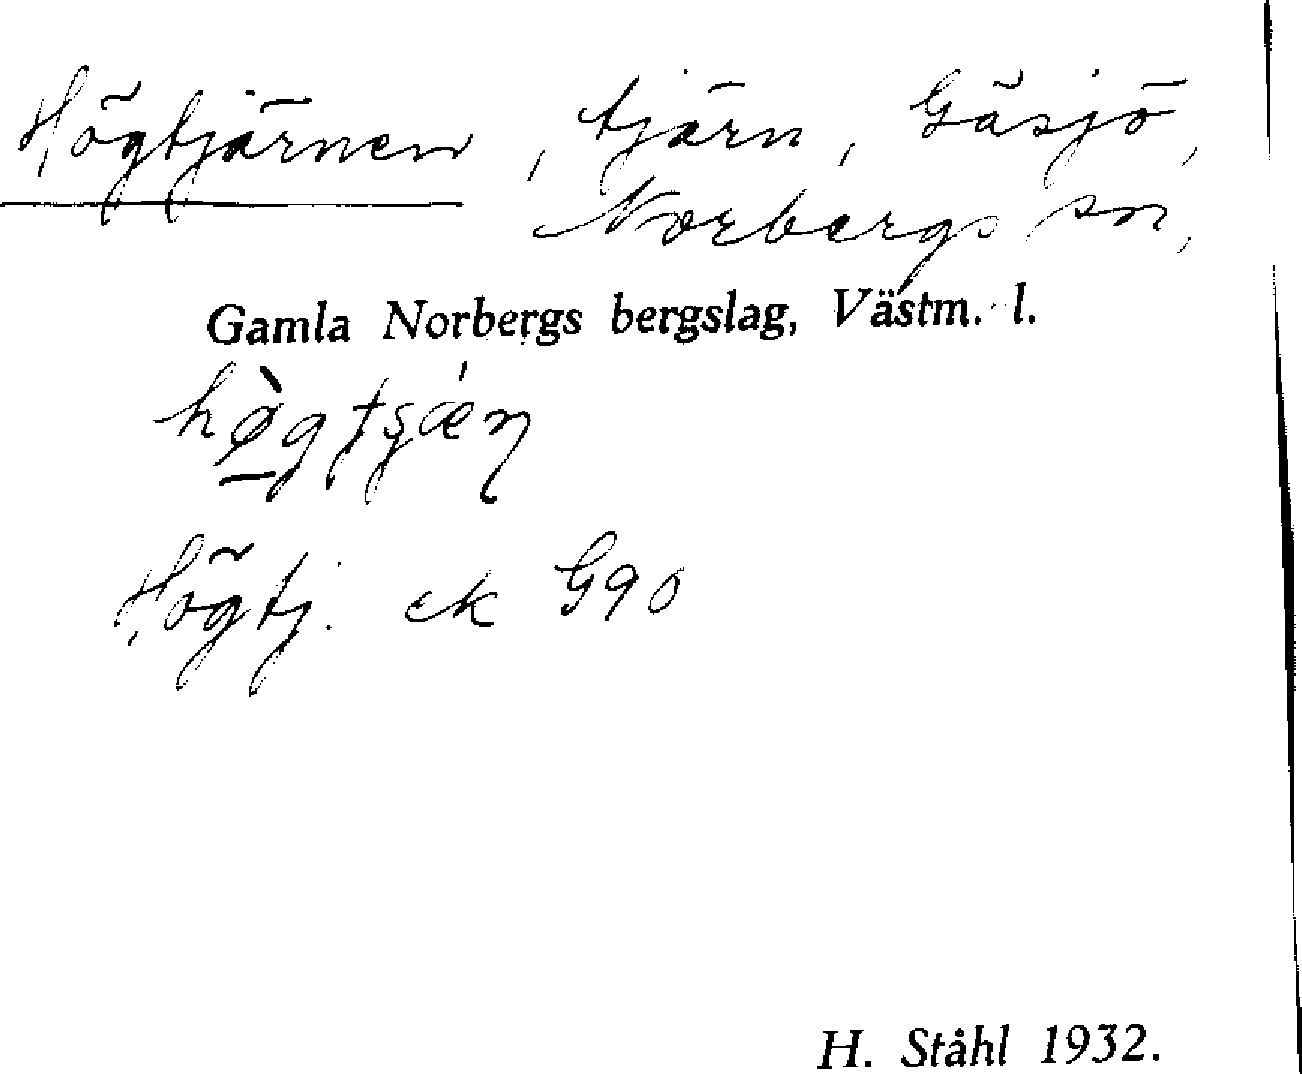 Högtjärnen, tjärn, Gäsjö,
Norbergs sn,
Gamla Norbergs bergslag, Västm. l.
Högtj. ek G90
H. Ståhl 1932.